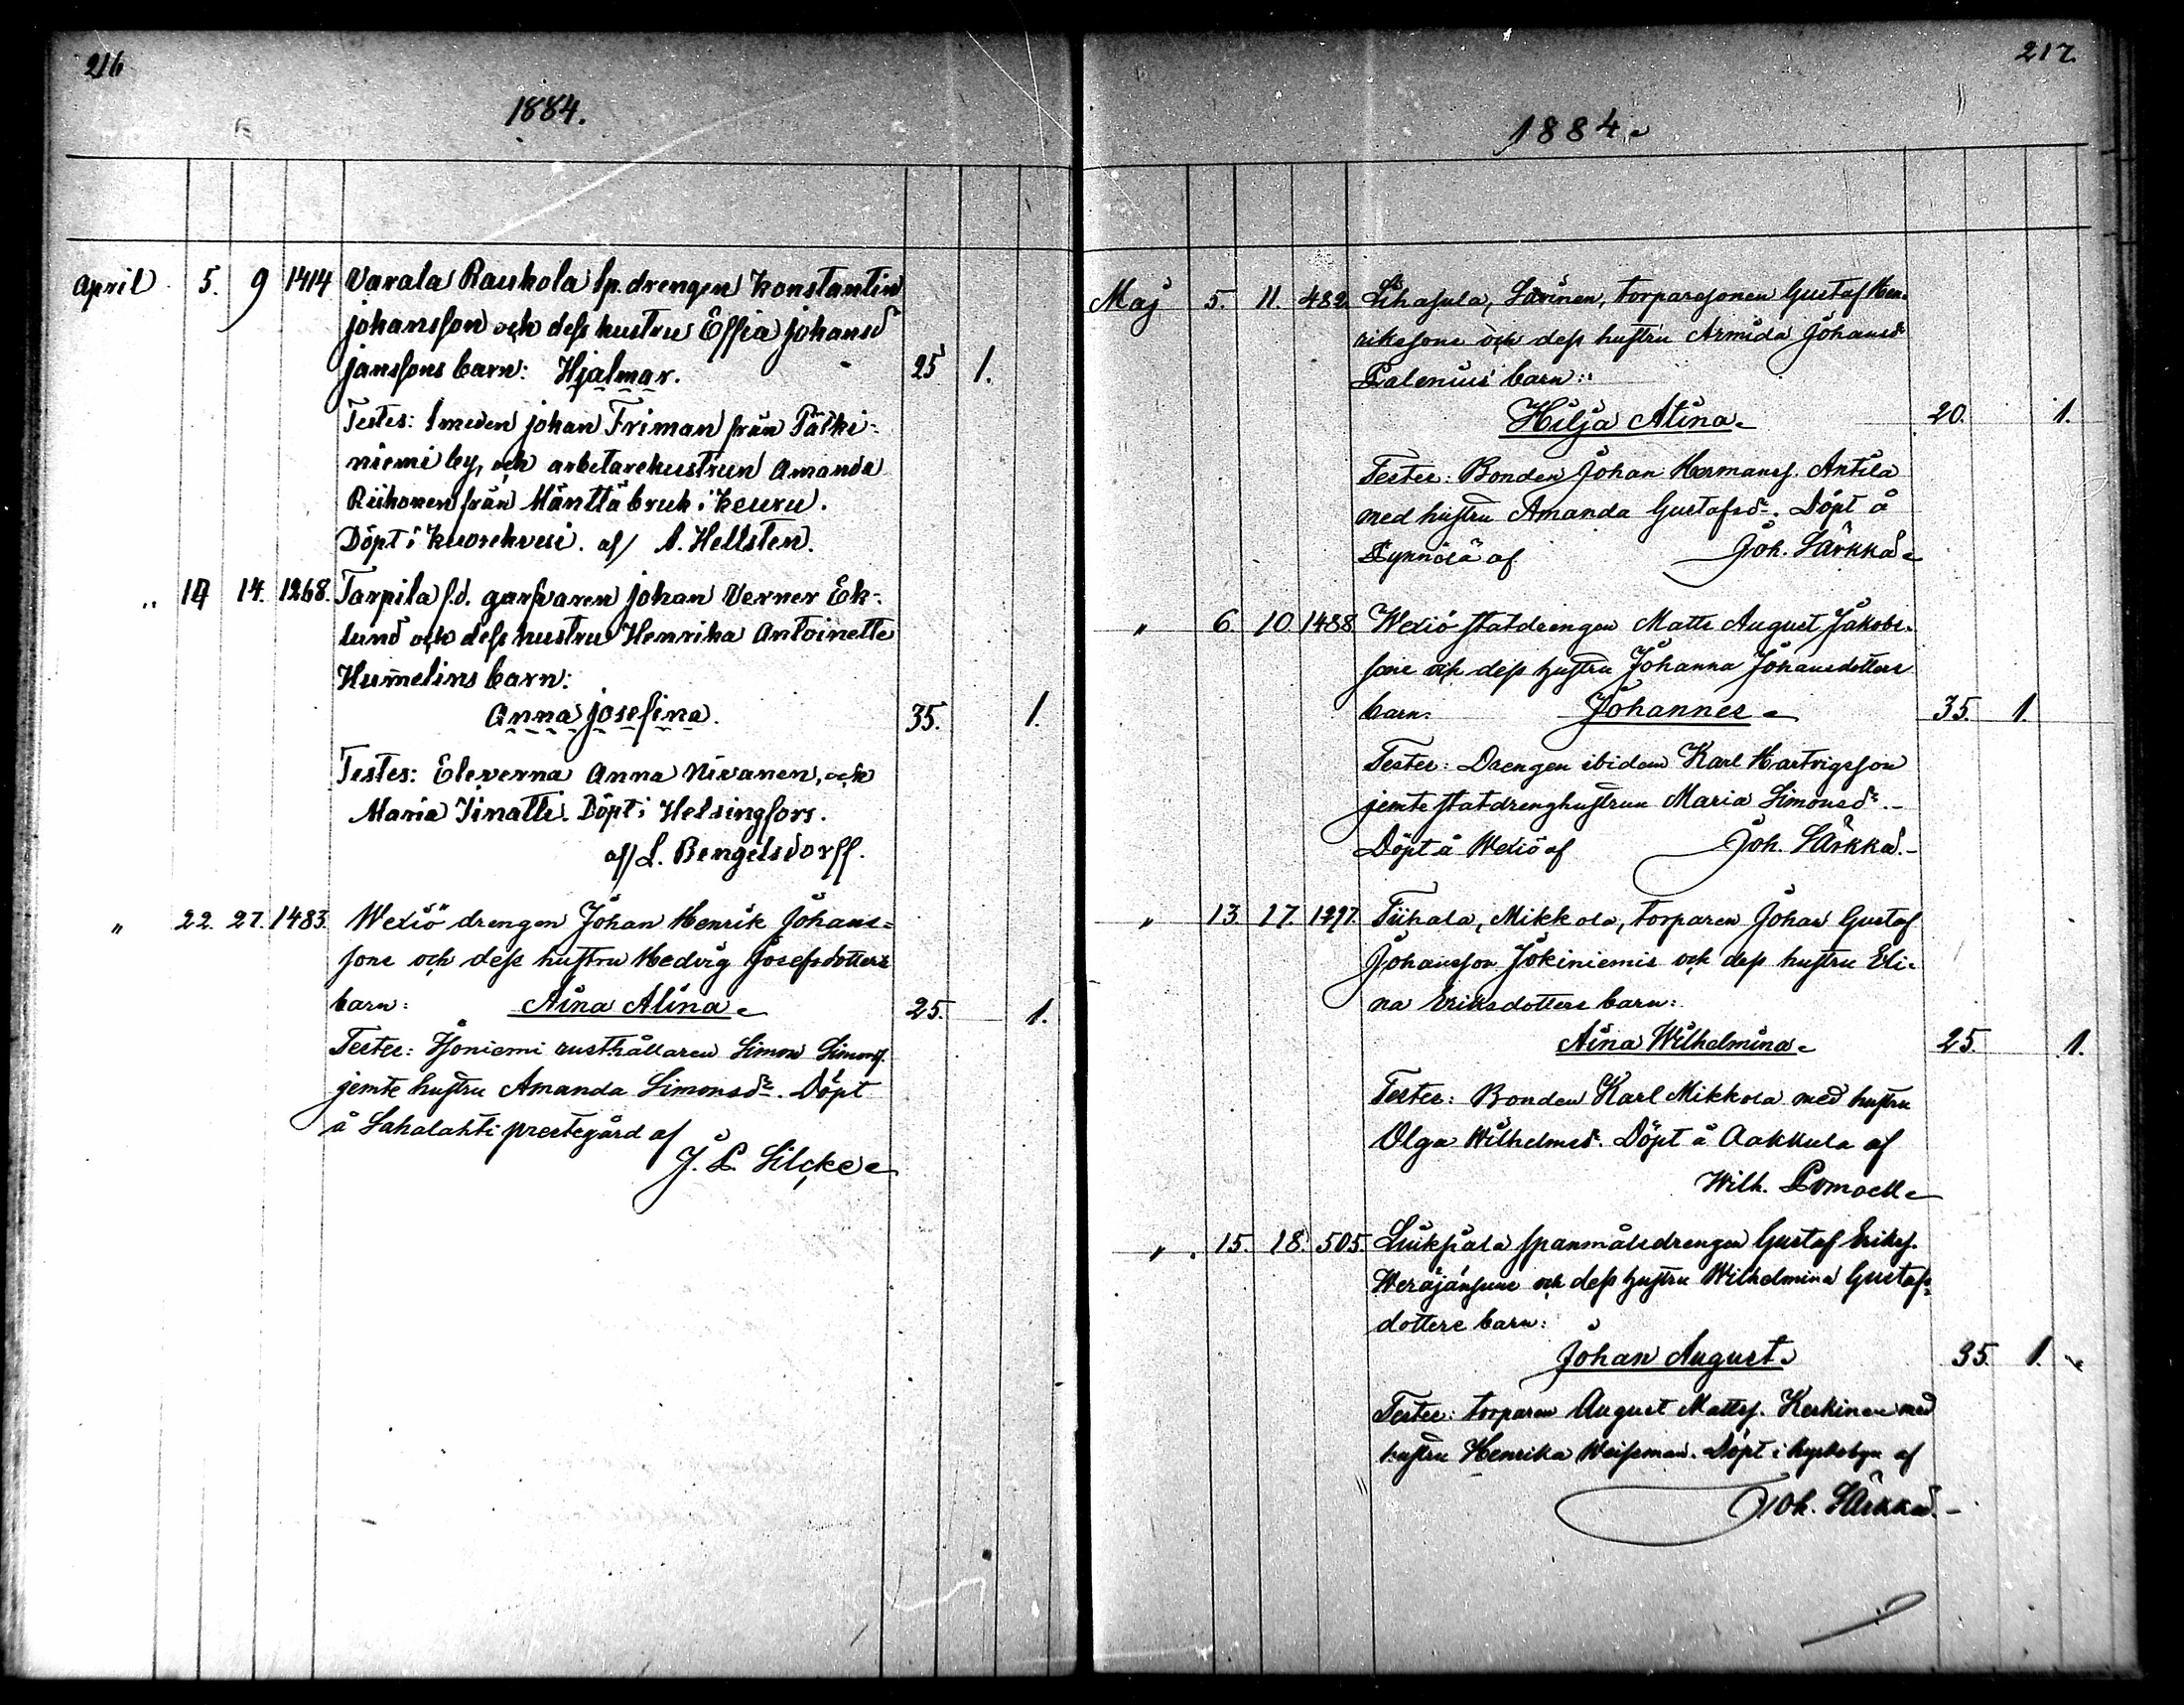 216
1884.
April 5. 9 1414 Varala Raukola sp.drengen Konstantin
Johansson och dess hustru Effia Johansd
Janssons barn: Hjalmar. 25 1.
Testes: Smeden Johan Friman från Pälki-
niemi by, och arbetarehustrun Amanda
Riihonen från Mänttä bruk i Keuru.
Döpt i Kuorehvesi. af A. Hellsten.
" 14. 1268. Tarpila f.d. garfvaren Johan Verner Ek-
lund och dess hustru Henrika Antoinette
Hum̄elins barn:
Anna Josefina. 35. 1.
Testes: Eleverna Anna Nivanen, och
Maria Döpt i Helsingfors.
af L. Bengelsdorff.
" 22. 27. 1483. Wexiö drengen Johan Henrik Johans-
sons och dess hustru Hedvig Josefsdotters
barn: Aina Alina. 25. 1.
Testes: rusthållaren Simon Simonss.
jemte hustru Amanda Simonsdr. Döpt
å Sahalahti prestegård af
J. L. Silcke.
217.
1884.
Maj 5. 11. 482. Lihasula, torparesonen Gustaf Hen-
rikssons och dess hustru Armida Johansdr
Palenius barn:
Hilja Alina. 20. 1.
Testes: Bonden Johan Hermanss. Antila
med hustru Amanda Gustafsdr. Döpt å
af Joh. Särkkä.
" 6. 10. 1488. Wexiö statdrengen Matts August Jakobs-
sons och dess hustru Johanna Johansdotters
barn: Johannes. 35. 1.
Testes: Drengen ibidem Karl Hartvigsson
jemte statdrenghustrun Maria Simonsdr.
Döpt å Wexiö af Joh. Särkkä.
" 13. 17. 1297. Tiihala, Mikkola, torparen Johan Gustaf
Johansson Jokiniemis och dess hustru Eli-
na Eriksdotters barn:
Aina Wilhelmina. 25. 1.
Testes: Bonden Karl Mikkola med hustru
Olga Wilhelmsdr. Döpt å Aakkula af
Wilh. Pomoell.
" 15. 18. 505. Liuksiala spanmålsdrengen Gustaf Eriks.
och dess hustru Wilhelmina Gustafs-
dotters barn:
Johan August. 35. 1.
Testes: torparen August Matts. Keskinen med
hustru Henrika Döpt i kyrkobyn af
Joh. Särkkä.